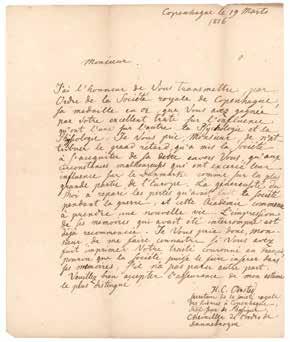 Copenhague le 19 Mars
1816
Monsieur
J'ai l'honneur de Vous transmettre par
Ordre de la Société royale de Copenhague,
la medaille en or que Vous avez gagnée
par votre excellent traité sur l'influence
qu'ont l'une sur l'autre la Psychologie et la
Physiologie. Je Vous prie Monsieur de n'at-
tribuer le grand retard, qu'a mis la Société
à s'acquitter de sa dette envers Vous, qu'aux
circonstances malheureuses qui ont exercé leur
influence sur le Danemark comme sur la plus
grande partie de l'Europe. La générosité du
Roi a réparé les pertes qu'avait fait la Société
pendant la guerre, et cette Academie commence
à prendre une nouvelle vie. L'impression
de ses memoires qui avait été interrompue est
déjà recommencée. Je Vous prie donc, mon-
sieur, de me faire connaitre si Vous avez
fait imprimer Votre traité couronné en français
pourvu que la Société puisse le faire inserer dans
ses memoires, s'il n'a pas paru autre part.
Veuillez bien accepter l'assurance de mon estime
la plus distinguée
H. C. Örsted
secretaire de la société royale
des sciences à Copenhague,
Professeur de Physique
Chevalier de l'ordre de
Dannebrog